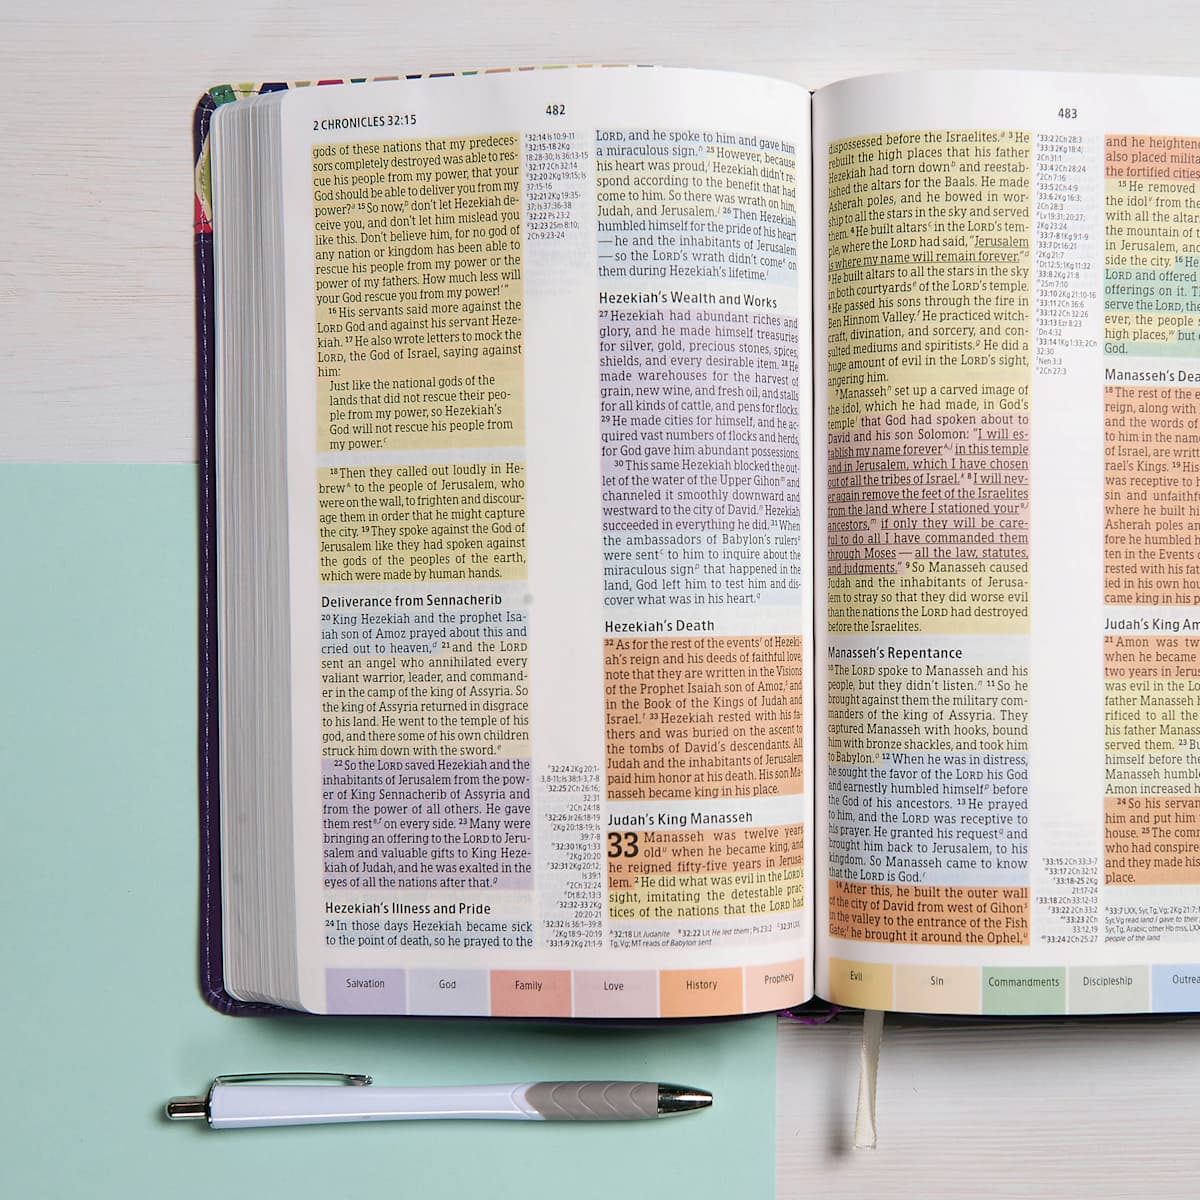 2 CHRONICLES 32:15
482
gods of these nations that my predeces-
sors completely destroyed was able to res-
cue his people from my power, that your
God should be able to deliver you from my
power? ¹⁵ So now, don't let Hezekiah de-
ceive you, and don't let him mislead you
like this. Don't believe him, for no god of
any nation or kingdom has been able to
rescue his people from my power or the
power of my fathers. How much less will
your God rescue you from my power!'"
¹⁶ His servants said more against the
LORD God and against his servant Heze-
kiah. ¹⁷ He also wrote letters to mock the
LORD, the God of Israel, saying against
him:
Just like the national gods of the
lands that did not rescue their peo-
ple from my power, so Hezekiah's
God will not rescue his people from
my power.ᶜ
¹⁸ Then they called out loudly in He-
brewᴬ to the people of Jerusalem, who
were on the wall, to frighten and discour-
age them in order that he might capture
the city. ¹⁹ They spoke against the God of
Jerusalem like they had spoken against
the gods of the peoples of the earth,
which were made by human hands.
Deliverance from Sennacherib
²⁰ King Hezekiah and the prophet Isa-
iah son of Amoz prayed about this and
cried out to heaven,ᵈ ²¹ and the LORD
sent an angel who annihilated every
valiant warrior, leader, and command-
er in the camp of the king of Assyria. So
the king of Assyria returned in disgrace
to his land. He went to the temple of his
god, and there some of his own children
struck him down with the sword.ᵉ
²² So the LORD saved Hezekiah and the
inhabitants of Jerusalem from the pow-
er of King Sennacherib of Assyria and
from the power of all others. He gave
them rest on every side. ²³ Many were
bringing an offering to the LORD to Jeru-
salem and valuable gifts to King Heze-
kiah of Judah, and he was exalted in the
eyes of all the nations after that.ᵍ
Hezekiah's Illness and Pride
²⁴ In those days Hezekiah became sick
to the point of death, so he prayed to the
32:14 Is 10:9-11
32:15-18 2Kg
18:28-30; Is 36:13-15
32:17 2Ch 32:14
32:20 2Kg 19:15; Is
37:15-16
32:21 2Kg 19:35-
37; Is 37:36-38
32:22 Ps 23:2
32:23 2Sm 8:10;
2Ch 9:23-24
32:24 2Kg 20:1-
3,8-11; Is 38:1-3,7-8
32:25 2Ch 26:16;
32:31
2Ch 24:18
32:26 Jr 26:18-19
2Kg 20:18-19; Is
39:7-8
32:30 1Kg 1:33
2Kg 20:20
32:31 2Kg 20:12;
Is 39:1
2Ch 32:24
Dt 8:2; 13:3
32:32-33 2Kg
20:20-21
32:32 Is 36:1–39:8
2Kg 18:9–20:19
33:1-9 2Kg 21:1-9
LORD, and he spoke to him and gave him
a miraculous sign. ²⁵ However, because
his heart was proud, Hezekiah didn't re-
spond according to the benefit that had
come to him. So there was wrath on him,
Judah, and Jerusalem. ²⁶ Then Hezekiah
humbled himself for the pride of his heart
— he and the inhabitants of Jerusalem
— so the LORD's wrath didn't come on
them during Hezekiah's lifetime.
Hezekiah's Wealth and Works
²⁷ Hezekiah had abundant riches and
glory, and he made himself treasuries
for silver, gold, precious stones, spices,
shields, and every desirable item. ²⁸ He
made warehouses for the harvest of
grain, new wine, and fresh oil, and stalls
for all kinds of cattle, and pens for flocks.
²⁹ He made cities for himself, and he ac-
quired vast numbers of flocks and herds,
for God gave him abundant possessions.
³⁰ This same Hezekiah blocked the out-
let of the water of the Upper Gihon and
channeled it smoothly downward and
westward to the city of David. Hezekiah
succeeded in everything he did. ³¹ When
the ambassadors of Babylon's rulers
were sent to him to inquire about the
miraculous sign that happened in the
land, God left him to test him and dis-
cover what was in his heart.
Hezekiah's Death
³² As for the rest of the events of Hezeki-
ah's reign and his deeds of faithful love,
note that they are written in the Visions
of the Prophet Isaiah son of Amoz, and
in the Book of the Kings of Judah and
Israel. ³³ Hezekiah rested with his fa-
thers and was buried on the ascent to
the tombs of David's descendants. All
Judah and the inhabitants of Jerusalem
paid him honor at his death. His son Ma-
nasseh became king in his place.
Judah's King Manasseh
33 Manasseh was twelve years
old when he became king, and
he reigned fifty-five years in Jerusa-
lem. ² He did what was evil in the LORD's
sight, imitating the detestable prac-
tices of the nations that the LORD had
32:18 Lit Judahite 32:22 Lit He led them; Ps 23:2 32:31 LXX,
Tg, Vg; MT reads of Babylon sent
Salvation
God
Family
Love
History
Prophecy
483
dispossessed before the Israelites. ³ He
rebuilt the high places that his father
Hezekiah had torn down and reestab-
lished the altars for the Baals. He made
Asherah poles, and he bowed in wor-
ship to all the stars in the sky and served
them. ⁴ He built altars in the LORD's tem-
ple, where the LORD had said, "Jerusalem
is where my name will remain forever."
⁵ He built altars to all the stars in the sky
in both courtyards of the LORD's temple.
⁶ He passed his sons through the fire in
Ben Hinnom Valley. He practiced witch-
craft, divination, and sorcery, and con-
sulted mediums and spiritists. He did a
huge amount of evil in the LORD's sight,
angering him.
⁷ Manasseh set up a carved image of
the idol, which he had made, in God's
temple that God had spoken about to
David and his son Solomon: "I will es-
tablish my name forever in this temple
and in Jerusalem, which I have chosen
out of all the tribes of Israel. ⁸ I will nev-
er again remove the feet of the Israelites
from the land where I stationed your
ancestors, if only they will be care-
ful to do all I have commanded them
through Moses — all the law, statutes,
and judgments." ⁹ So Manasseh caused
Judah and the inhabitants of Jerusa-
lem to stray so that they did worse evil
than the nations the LORD had destroyed
before the Israelites.
Manasseh's Repentance
¹⁰ The LORD spoke to Manasseh and his
people, but they didn't listen. ¹¹ So he
brought against them the military com-
manders of the king of Assyria. They
captured Manasseh with hooks, bound
him with bronze shackles, and took him
to Babylon. ¹² When he was in distress,
he sought the favor of the LORD his God
and earnestly humbled himself before
the God of his ancestors. ¹³ He prayed
to him, and the LORD was receptive to
his prayer. He granted his request and
brought him back to Jerusalem, to his
kingdom. So Manasseh came to know
that the LORD is God.
¹⁴ After this, he built the outer wall
of the city of David from west of Gihon
in the valley to the entrance of the Fish
Gate; he brought it around the Ophel,
33:2 2Ch 28:3
33:3 2Kg 18:4;
2Ch 31:1
33:4 2Ch 28:24
2Ch 7:16
33:5 2Ch 4:9
33:6 2Kg 16:3;
2Ch 28:3
Lv 19:31; 20:27;
2Kg 23:24
33:7-8 1Kg 9:1-9
33:7 Dt 16:21
2Kg 21:7
Dt 12:5; 1Kg 11:32
33:8 2Kg 21:8
2Sm 7:10
33:10 2Kg 21:10-16
33:11 2Ch 36:6
33:12 2Ch 32:26
33:13 Ezr 8:23
Dn 4:32
33:14 1Kg 1:33; 2Ch
32:30
Neh 3:3
2Ch 27:3
33:15 2Ch 33:3-7
33:17 2Ch 32:12
33:18-25 2Kg
21:17-24
33:18 2Ch 33:12-13
33:22 2Ch 33:2
33:23 2Ch
33:12,19
33:24 2Ch 25:27
and he heightene
also placed milita
the fortified cities
¹⁵ He removed
the idol from th
with all the altar
the mountain of t
in Jerusalem, and
side the city. ¹⁶ He
LORD and offered
offerings on it. Th
serve the LORD, the
ever, the people s
high places, but o
God.
Manasseh's Dea
¹⁸ The rest of the e
reign, along with
and the words of
to him in the name
of Israel, are writt
rael's Kings. ¹⁹ His
was receptive to h
sin and unfaithfu
where he built hi
Asherah poles an
fore he humbled h
ten in the Events o
rested with his fat
ied in his own hou
came king in his p
Judah's King Am
²¹ Amon was tw
when he became
two years in Jerus
was evil in the Lo
father Manasseh h
rificed to all the
his father Manass
served them. ²³ Bu
himself before the
Manasseh humbl
Amon increased h
²⁴ So his servan
him and put him
house. ²⁵ The com
who had conspire
and they made his
place.
33:7 LXX, Syr, Tg, Vg; 2Kg 21:7; M
Syr, Vg read land I gave to their
Syr, Tg, Arabic; other Hb mss, LXX
people of the land
Evil
Sin
Commandments
Discipleship
Outrea